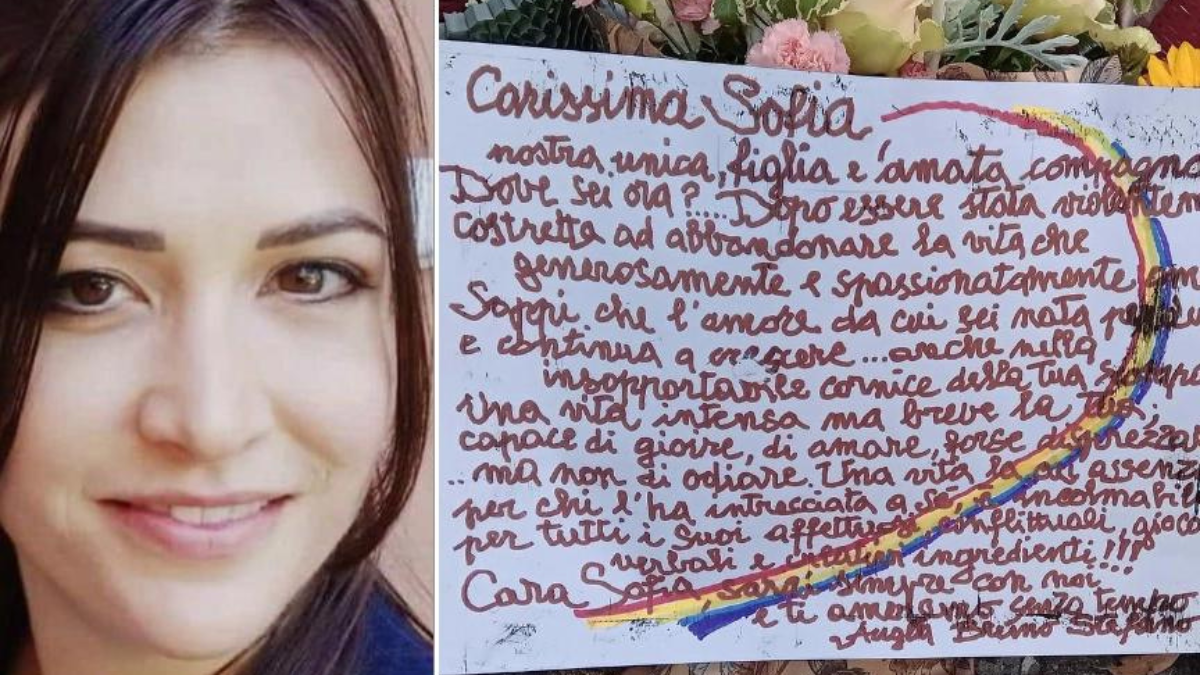 Carissima Sofia
nostra unica, figlia e amata compagna
Dove sei ora?.....Dopo essere stata
costretta ad abbandonare la vita che
generosamente e spassionatamente
Sappi che l'amore da cui sei nata
e continua a crescere ...anche nella
insopportabile cornice della Tua
Una vita intensa ma breve la Tua,
capace di gioire, di amare, forse
..ma non di odiare. Una vita la cui assenza
per chi l'ha intrecciata a sé, è incolmabile
per tutti i suoi affettuosi, conflittuali,
verbali e ingredienti!!!
Cara Sofia sarai sempre con noi
e ti ameremo senza tempo
Bruno Stefano